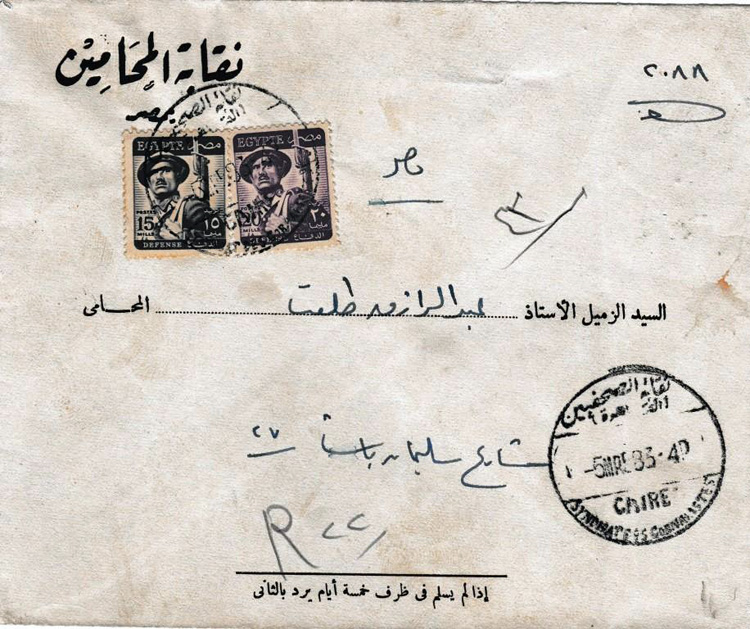 نقابة المحامين
بمصر
٢٠٨٨
EGYPTE مصر
POSTES
15
MILLS
١٥
مليما
DEFENSE الدفاع
EGYPTE مصر
20
٢٠
مليما
الدفاع
مصر
السيد الزميل الأستاذ عبد الرازق طلعت المحامى
شارع سليمان باشا ٢٧
نقابة الصحفيين
القاهرة
CAIRE
R
إذا لم يسلم فى ظرف خمسة أيام يرد بالثانى